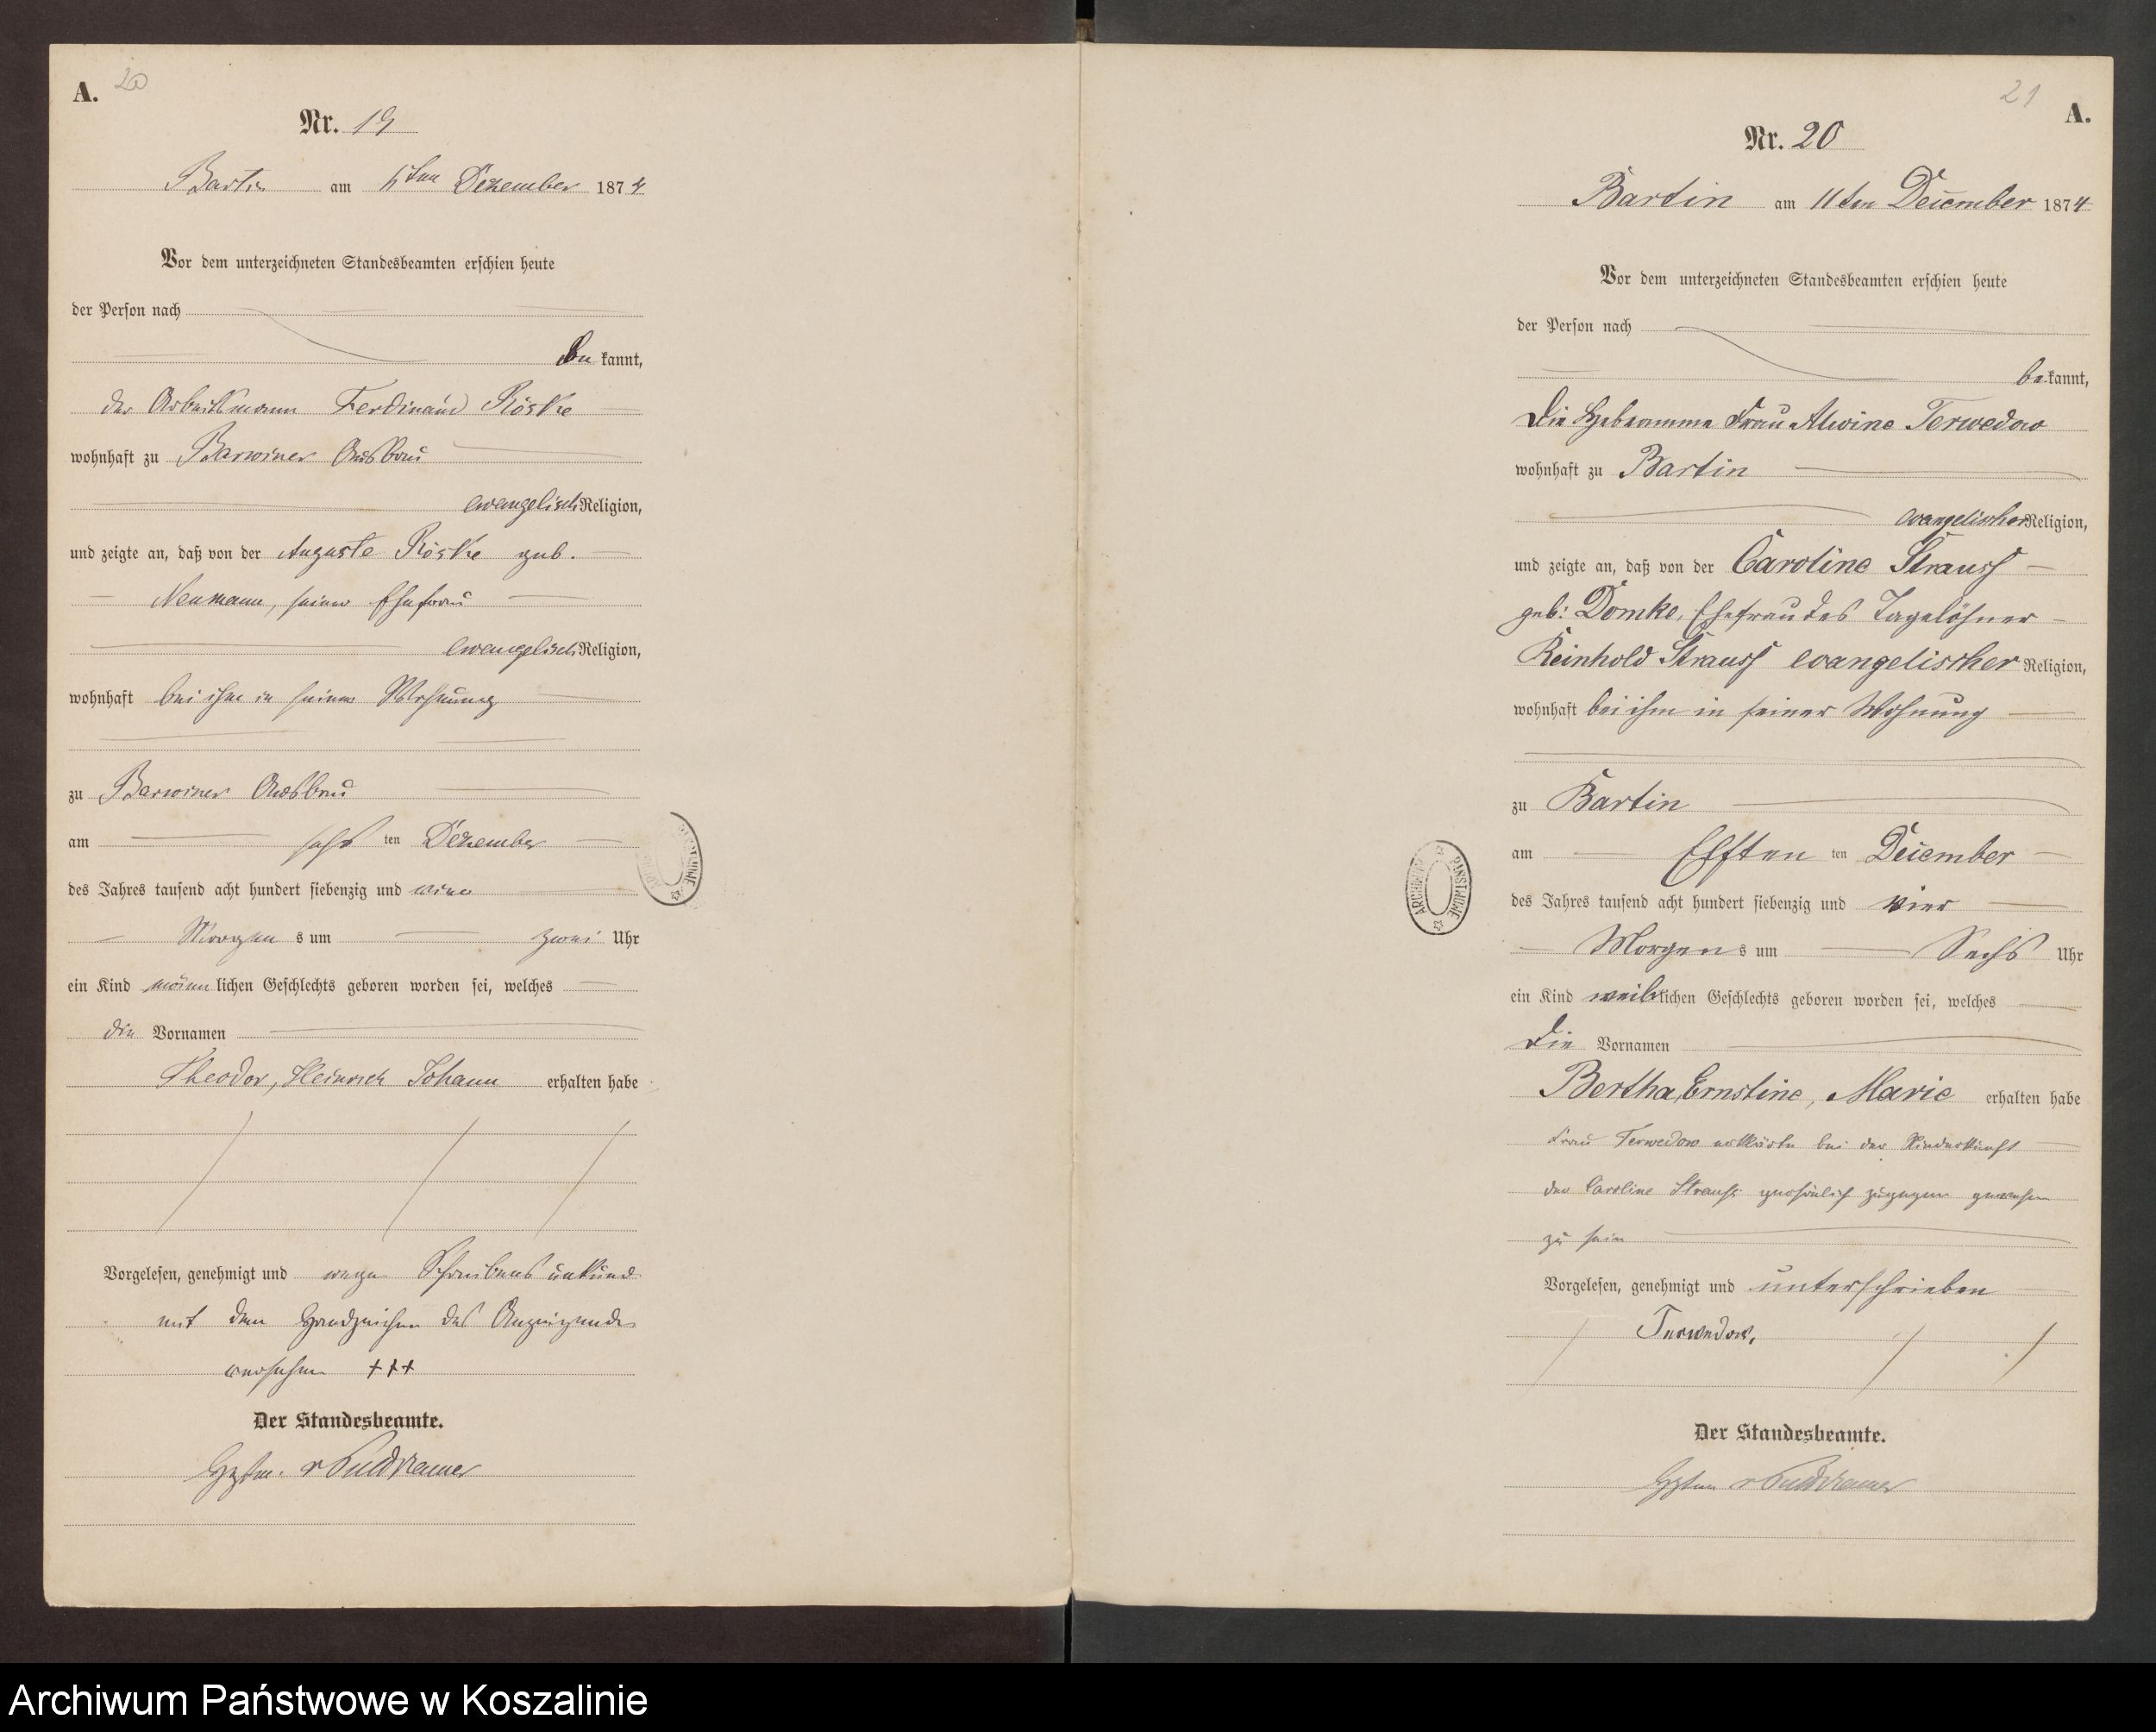 A. 20
Nr. 19
Bartin am 6ten Dezember 1874
Vor dem unterzeichneten Standesbeamten erschien heute
der Person nach
be kannt,
der Arbeitsmann Ferdinand Röske
wohnhaft zu Barwiner Ausbau
evangelisch Religion,
und zeigte an, daß von der Auguste Röske geb.
Neumann, seiner Ehefrau
evangelisch Religion,
wohnhaft bei ihm in seiner Wohnung
zu Barwiner Ausbau
am sechs ten Dezember
des Jahres tausend acht hundert siebenzig und vier
Morgen s um zwei Uhr
ein Kind männ lichen Geschlechts geboren worden sei, welches
die Vornamen
Theodor, Heinrich Johann erhalten habe
Vorgelesen, genehmigt und wegen Schreibens unkund
mit dem Handzeichen des Anzeigenden
versehen +++
Der Standesbeamte.
v Puttkamer
ARCHIWUM PAŃSTWOWE
21 A.
Nr. 20
Bartin am 11ten December 1874
Vor dem unterzeichneten Standesbeamten erschien heute
der Person nach
be kannt,
Die Hebeamme Frau Alwine Terwedow
wohnhaft zu Bartin
evangelischer Religion,
und zeigte an, daß von der Caroline Strauss
geb: Domke, Ehefrau des Tagelöhner
Reinhold Strauss evangelischer Religion,
wohnhaft bei ihm in seiner Wohnung
zu Bartin
am Elften ten December
des Jahres tausend acht hundert siebenzig und vier
Morgen s um Sechs Uhr
ein Kind weib lichen Geschlechts geboren worden sei, welches
Die Vornamen
Bertha, Ernstine, Marie erhalten habe
Frau Terwedow erklärte bei der Niederkunft
der Caroline Strauss persönlich zugegen gewesen
zu sein
Vorgelesen, genehmigt und unterschrieben
Terwedow,
Der Standesbeamte.
v Puttkamer
ARCHIWUM PAŃSTWOWE
Archiwum Państwowe w Koszalinie